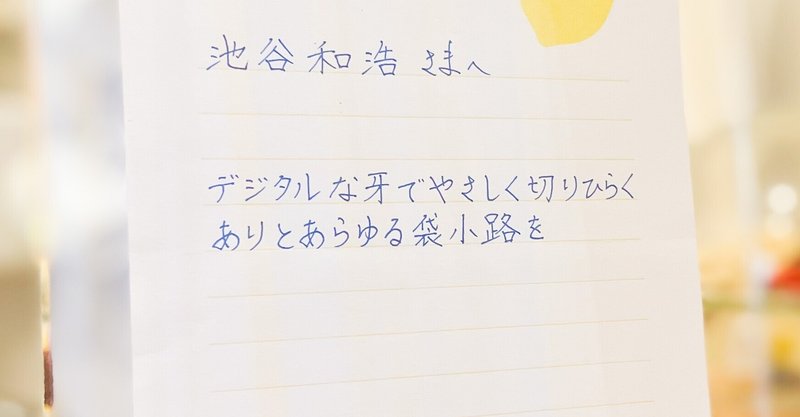 池谷和浩 さまへ
デジタルな牙でやさしく切りひらく
ありとあらゆる袋小路を